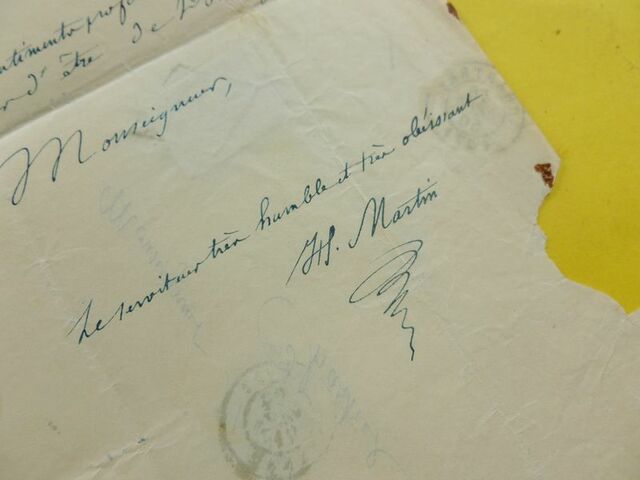 sentiments prof
d'être de Vo
Monseigneur,
Le serviteur très humble et très obéissant
H. Martin